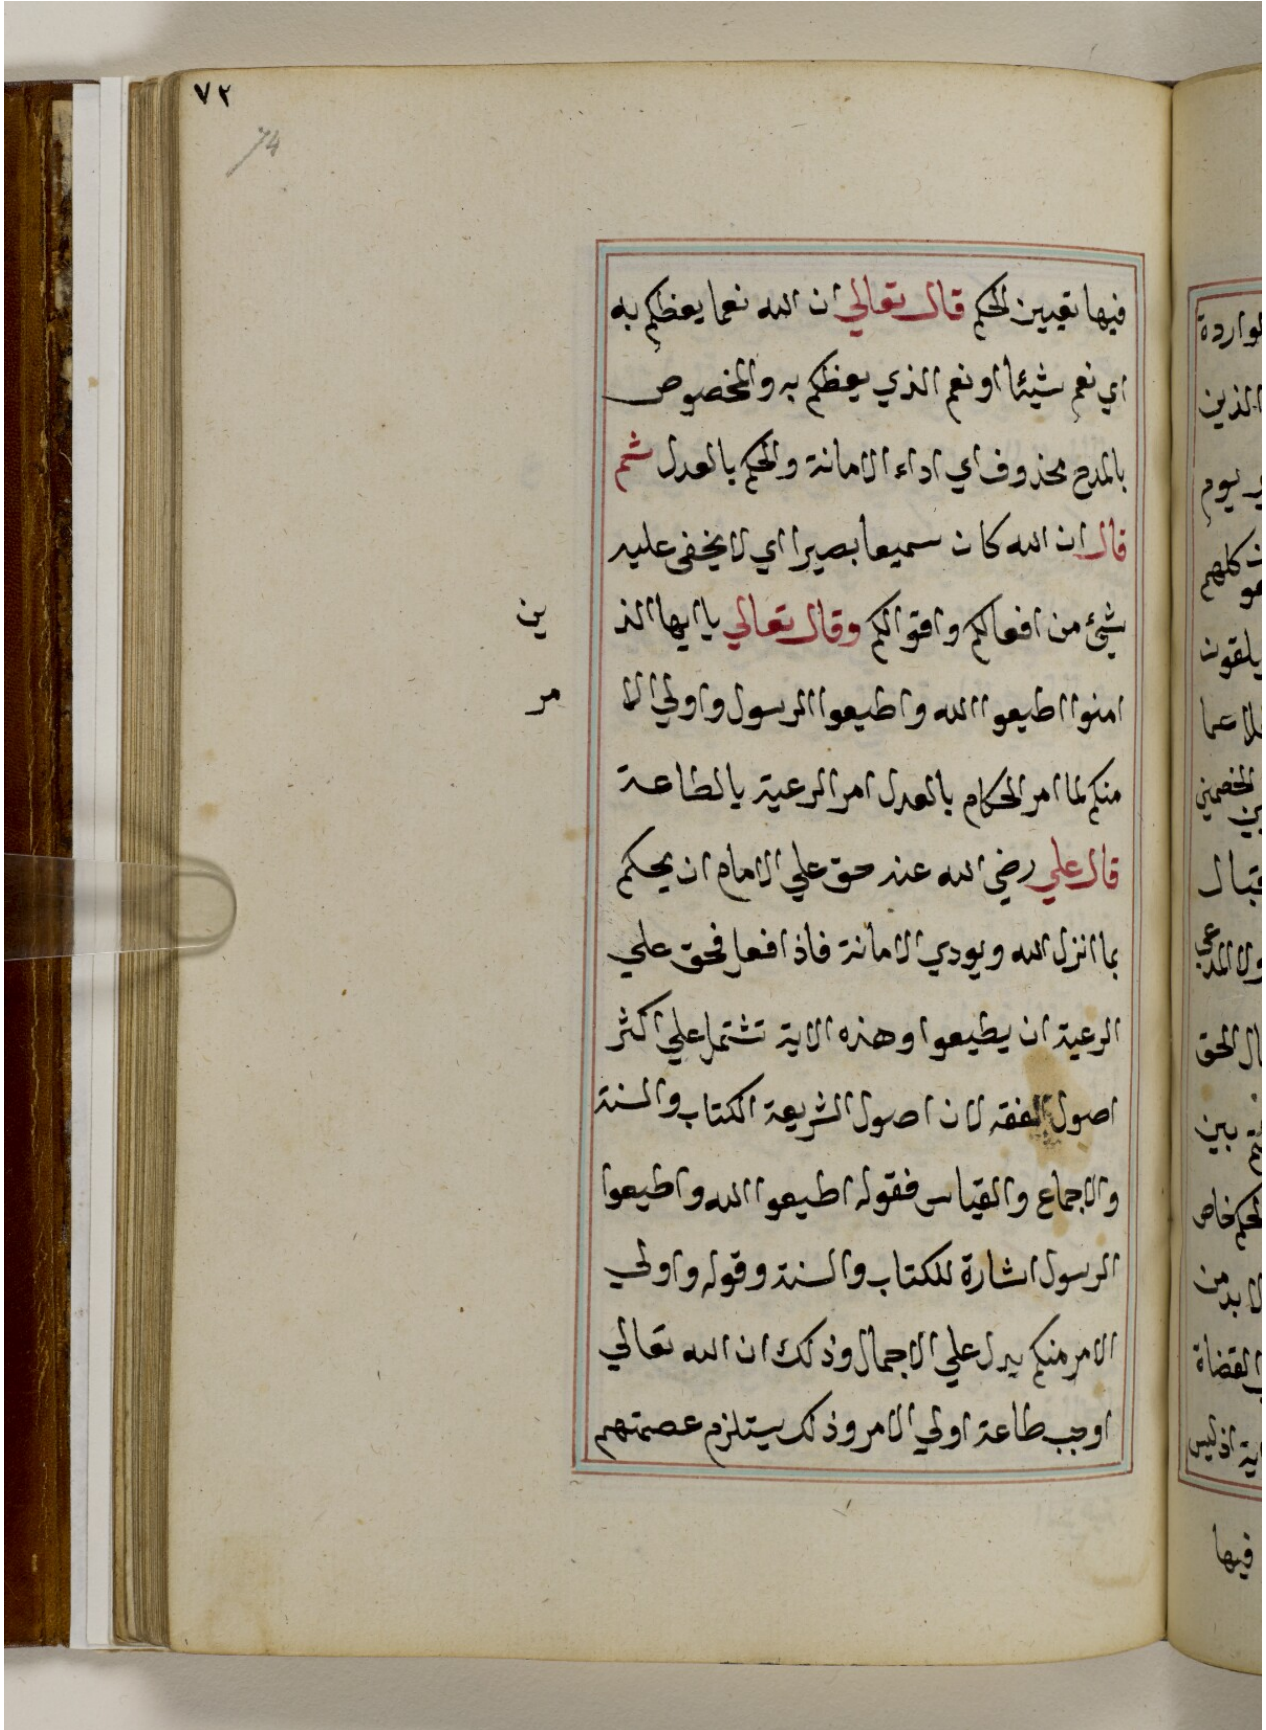 ٧٢
74
فيها تعيين الحكم قال تعالي ان الله نعما يعظكم به
اي نعم شيئا او نعم الذي يعظكم به والمخصوص
بالمدح محذوف اي اداء الامانة والحكم بالعدل ثم
قال ان الله كان سميعا بصيرا اي لا يخفى عليه
شيئ من افعالكم واقوالكم وقال تعالي يا ايها الذ ين
امنوا اطيعوا الله واطيعوا الرسول واولي الا مر
منكم لما امر الحكام بالعدل امر الرعية بالطاعة
قال علي رضي الله عنه حق علي الامام ان يحكم
بما انزل الله ويودي الامانة فاذا فعل فحق علي
الرعية ان يطيعوا وهذه الاية تشتمل علي اكثر
اصول الفقه لان اصول الشريعة الكتاب والسنة
والاجماع والقياس فقوله اطيعوا الله واطيعوا
الرسول اشارة للكتاب والسنة وقوله واولي
الامر منكم يدل علي الاجمال وذلك ان الله تعالي
اوجب طاعة اولي الامر وذلك يستلزم عصمتهم
واردة
الذين
يوم
كلهم
يلقون
عما
الخصمين
قبال
ولا المدعي
الحق
بين
خاص
لا بد من
القضاة
اذ ليس
فيها